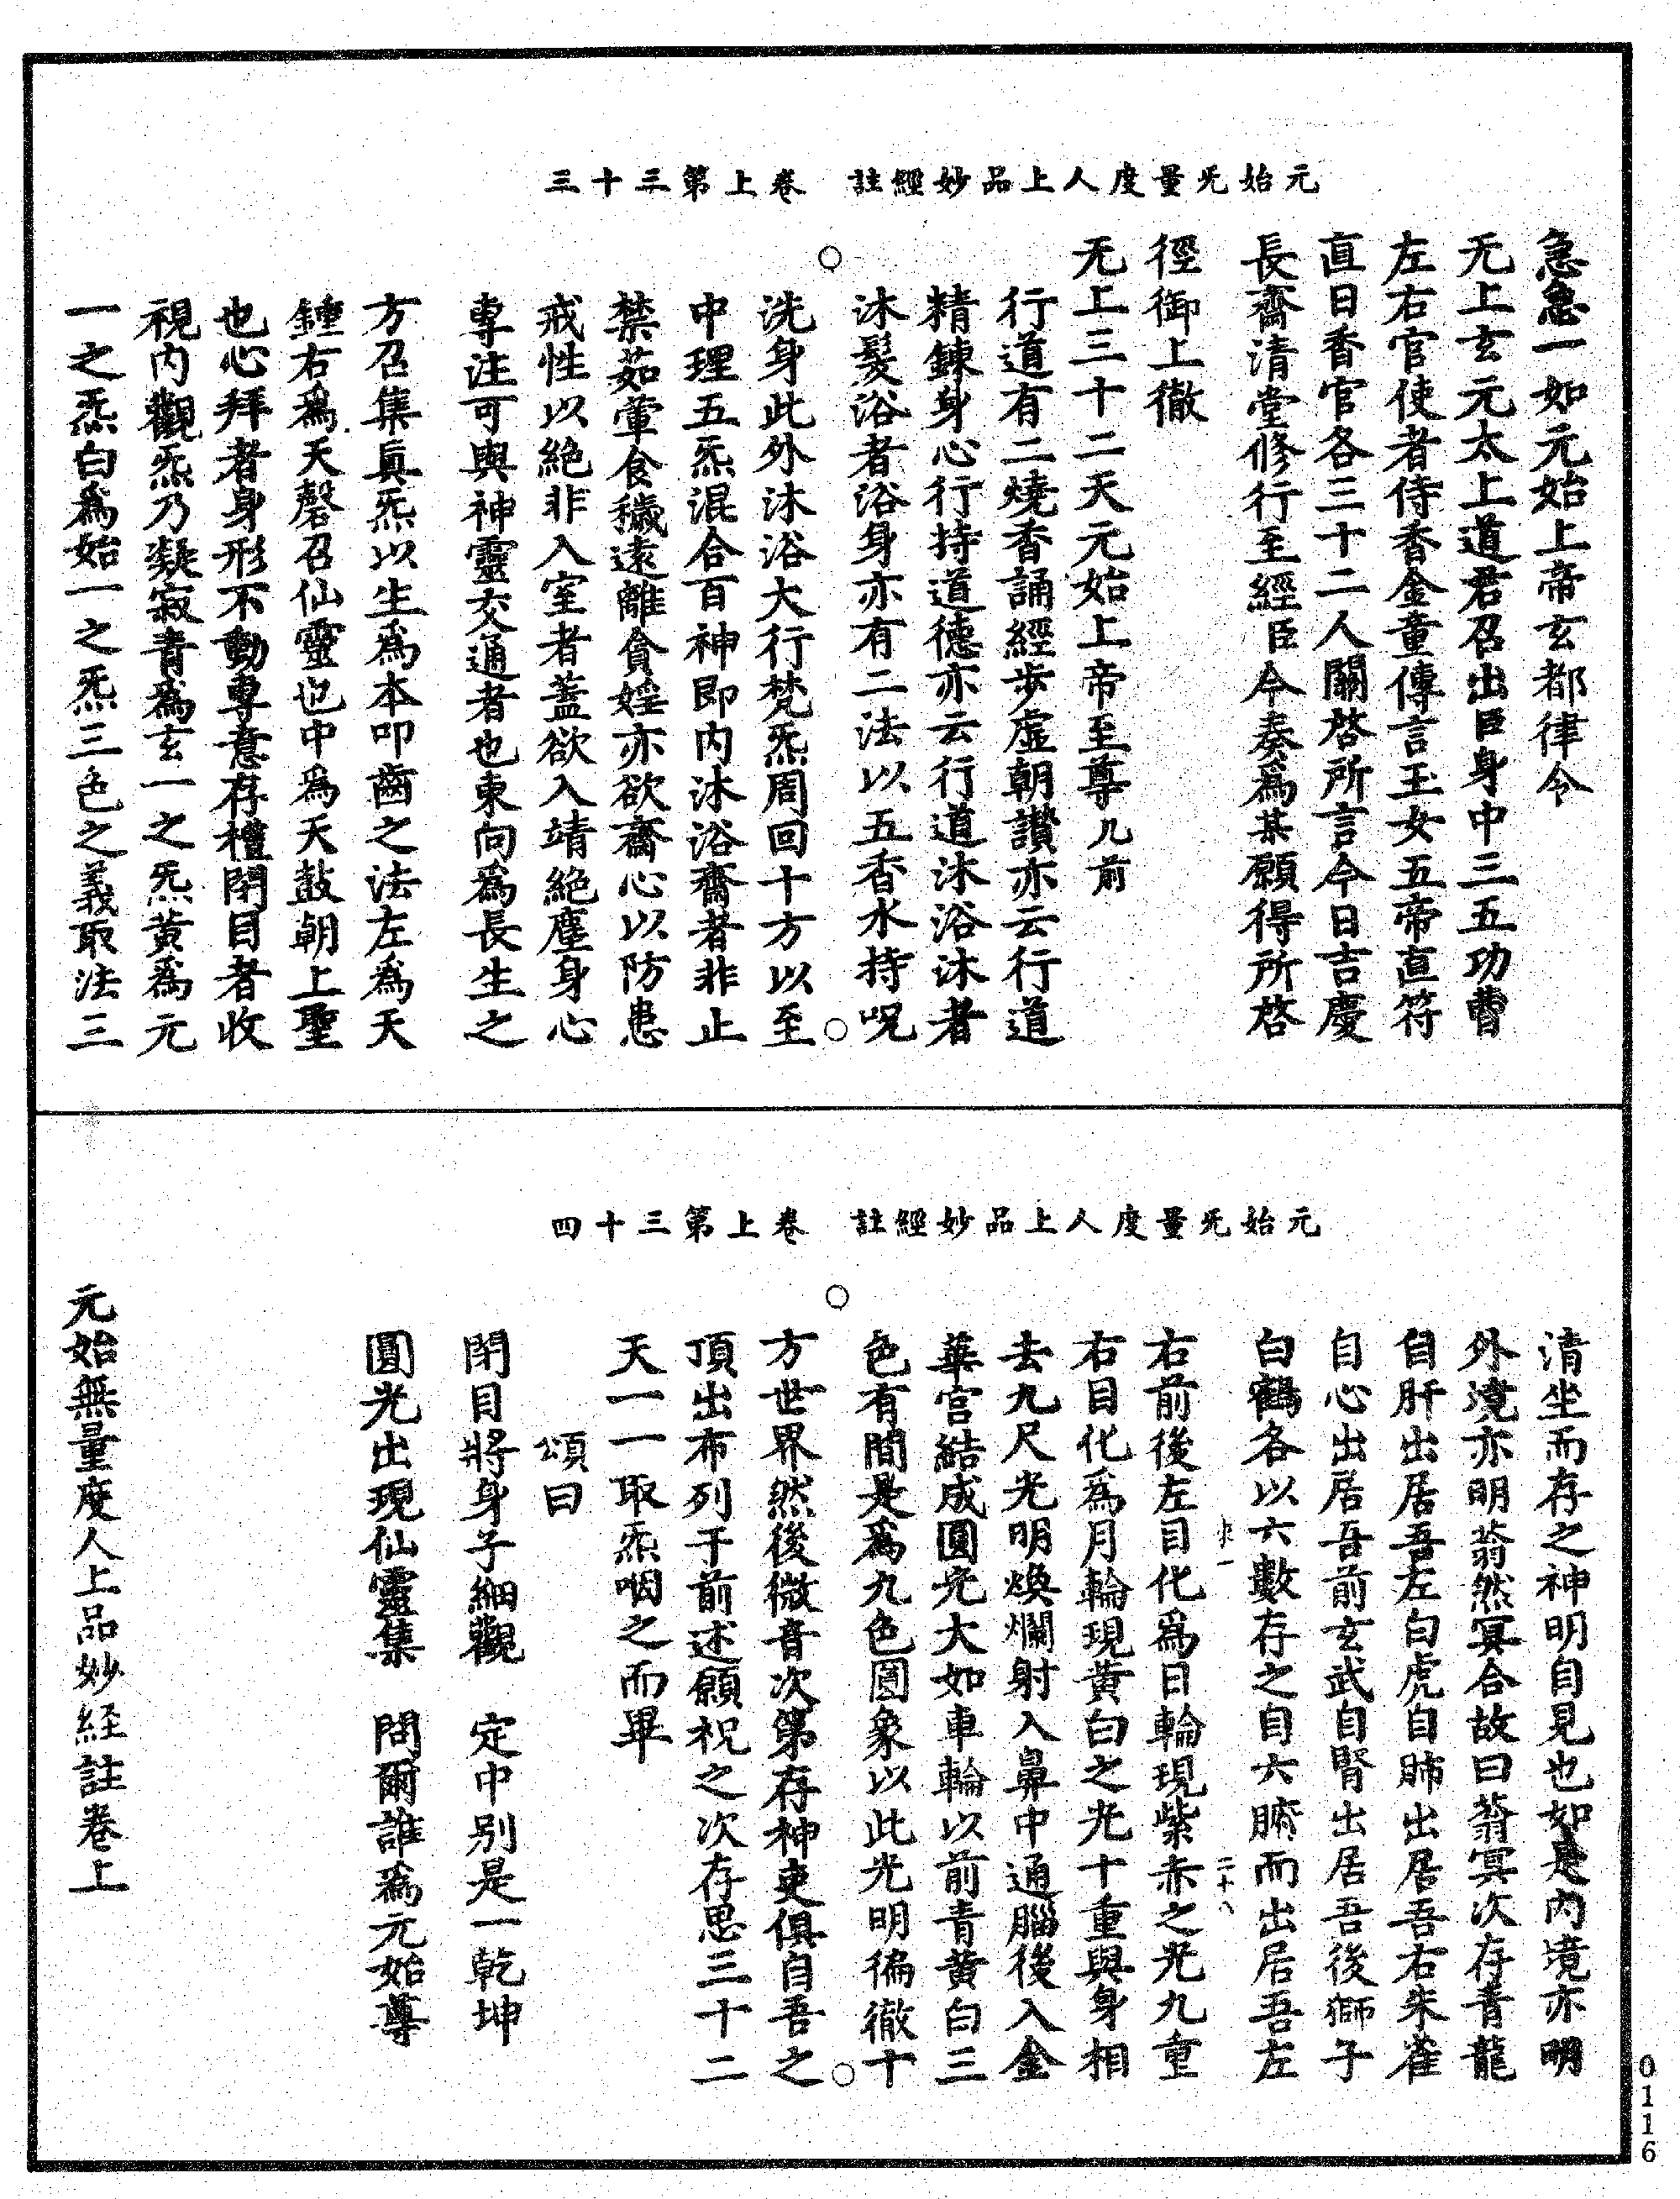 元始旡量度人上品妙經註　卷上第三十三
急急一如元始上帝玄都律令
无上玄元太上道君召出臣身中三五功曹
左右官使者侍香金童傳言玉女五帝直符
直日香官各三十二人關啓所言今日吉慶
長齋清堂修行至經臣今奏爲某願得所啓
徑御上徹
无上三十二天元始上帝至尊几前
行道有二燒香誦經步虛朝讚亦云行道
精鍊身心行持道德亦云行道沐浴沐者
沐髮浴者浴身亦有二法以五香水持呪
洗身此外沐浴大行梵炁周回十方以至
中理五炁混合百神即内沐浴齋者非止
禁茹葷食穢遠離貪婬亦欲齋心以防患
戒性以絶非入室者蓋欲入靖絶塵身心
專注可與神靈交通者也東向爲長生之
方召集眞炁以生爲本叩齒之法左爲天
鍾右爲天磬召仙靈也中爲天鼓朝上聖
也心拜者身形不動專意存禮閉目者收
視内觀炁乃凝寂青爲玄一之炁黄爲元
一之炁白爲始一之炁三色之義取法三
元始旡量度人上品妙經註　卷上第三十四
清坐而存之神明自見也如是内境亦明
外境亦明蓊然冥合故曰蓊冥次存青龍
自肝出居吾左白虎自肺出居吾右朱雀
自心出居吾前玄武自腎出居吾後獅子
白鶴各以六數存之自六腑而出居吾左
右前後左目化爲日輪現紫赤之光九重
右目化爲月輪現黄白之光十重與身相
去九尺光明煥爛射入鼻中通腦後入金
華宫結成圓光大如車輪以前青黄白三
色有間是爲九色圓象以此光明徧徹十
方世界然後微音次第存神吏俱自吾之
頂出布列于前述願祝之次存思三十二
天一一取炁咽之而畢
頌曰
閉目將身子細觀　定中别是一乾坤
圓光出現仙靈集　問爾誰爲元始尊
元始無量度人上品妙経註卷上
0116